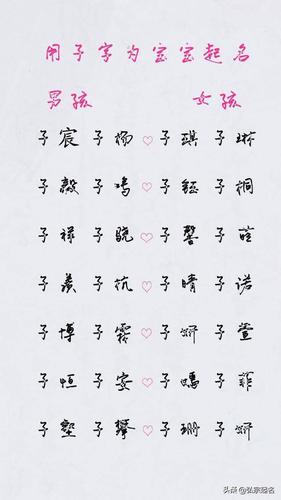 用子字为宝宝起名
男孩 女孩
子宸 子杨 ♡ 子琪 子琳
子毅 子鸣 ♡ 子钰 子桐
子祥 子骁 ♡ 子馨 子萱
子羡 子杭 ♡ 子晴 子诺
子博 子霖 ♡ 子妍 子萱
子恒 子安 ♡ 子嫣 子菲
子墅 子攀 ♡ 子珊 子妍
头条@弘宗起名